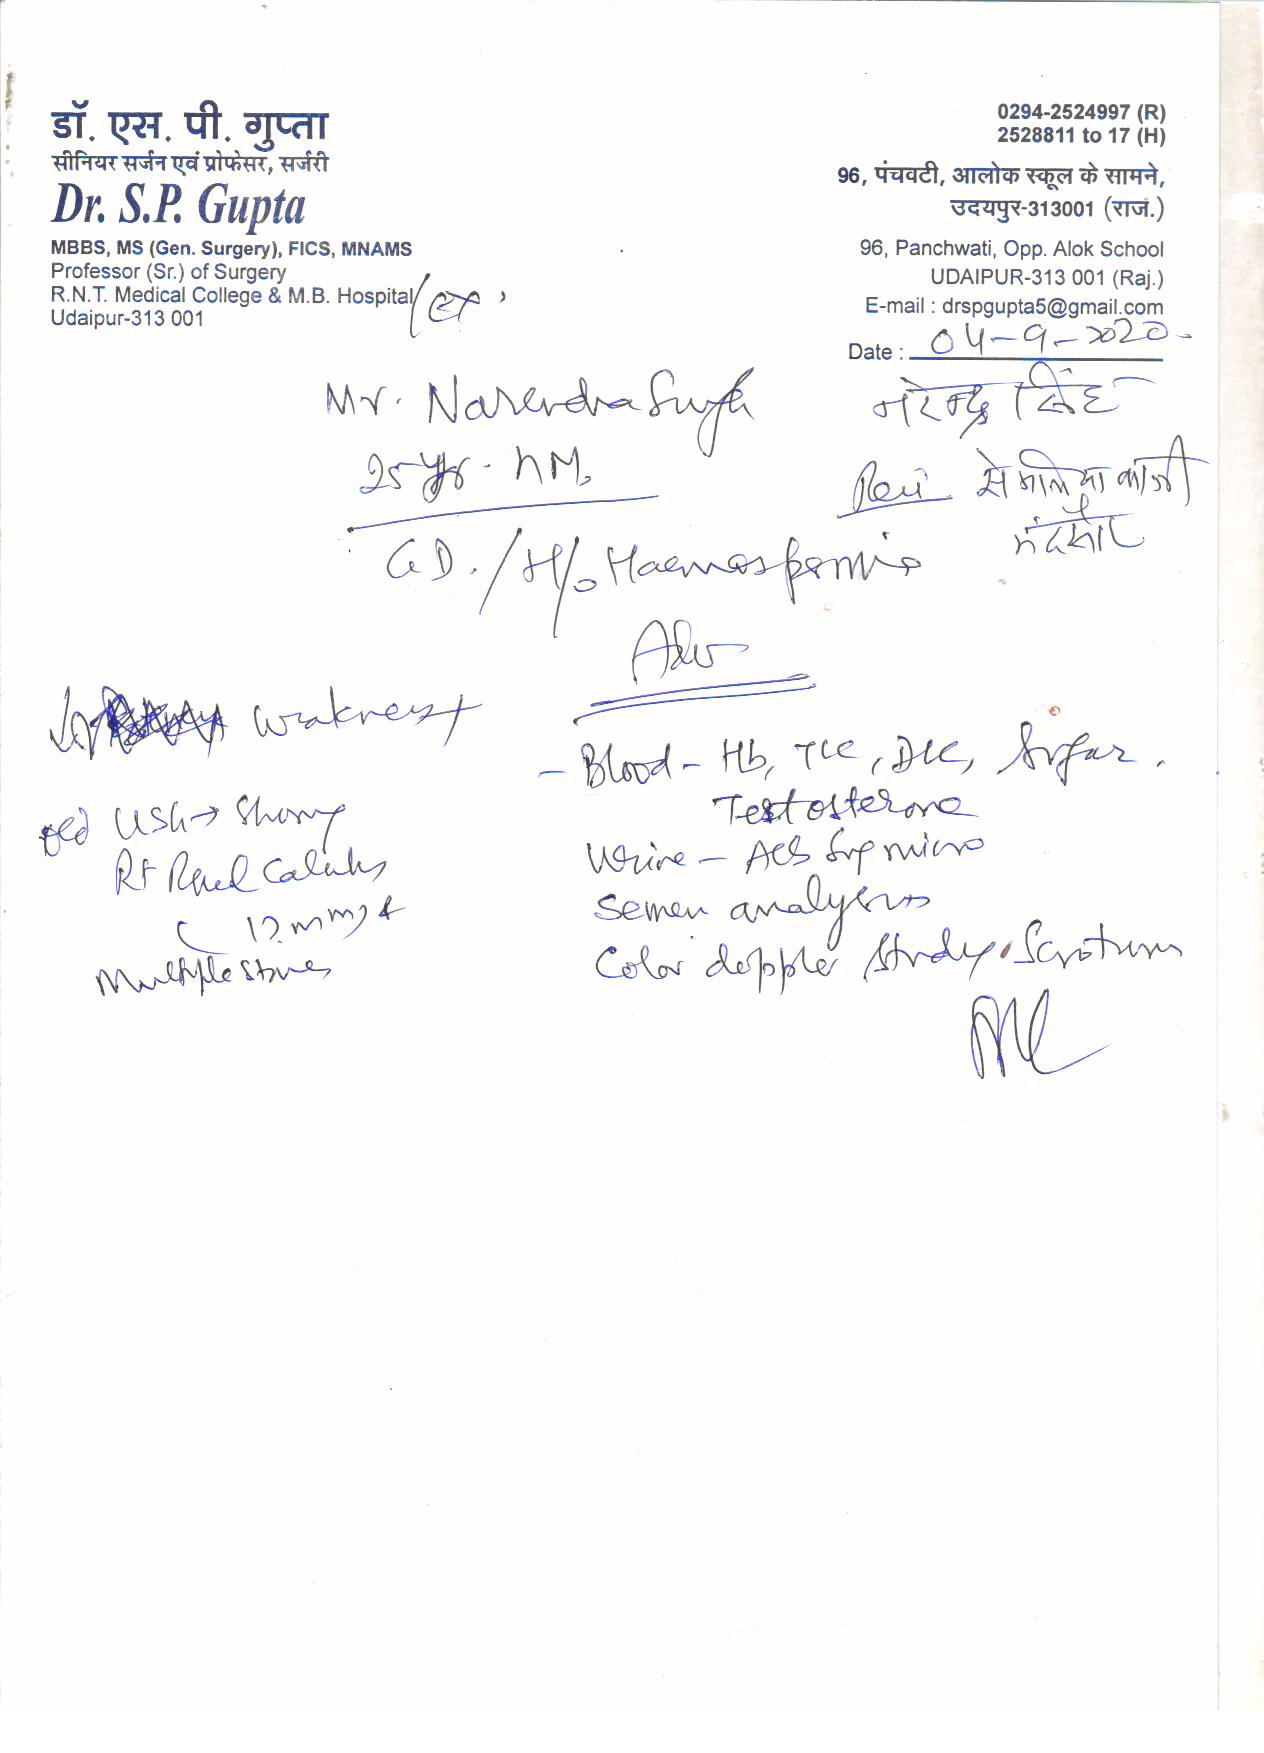 डॉ. एस. पी. गुप्ता
सीनियर सर्जन एवं प्रोफेसर, सर्जरी
Dr. S.P. Gupta
MBBS, MS (Gen. Surgery), FICS, MNAMS
Professor (Sr.) of Surgery
R.N.T. Medical College & M.B. Hospital
Udaipur-313 001
0294-2524997 (R)
2528811 to 17 (H)
96, पंचवटी, आलोक स्कूल के सामने,
उदयपुर-313001 (राज.)
96, Panchwati, Opp. Alok School
UDAIPUR-313 001 (Raj.)
E-mail : drspgupta5@gmail.com
Date : 04-9-2020
Mr. Narendra Singh
नरेन्द्र सिंह
25 yrs
मंदसौर
/ H/o Haemospermia
Adv
weakness
old USG → Showing
Rt Renal Calculus
12 mm
Multiple stones
- Blood - Hb, TLC, DLC, Sugar.
Testosterone
Urine - micro
Semen analysis
Color doppler Study. Scrotum